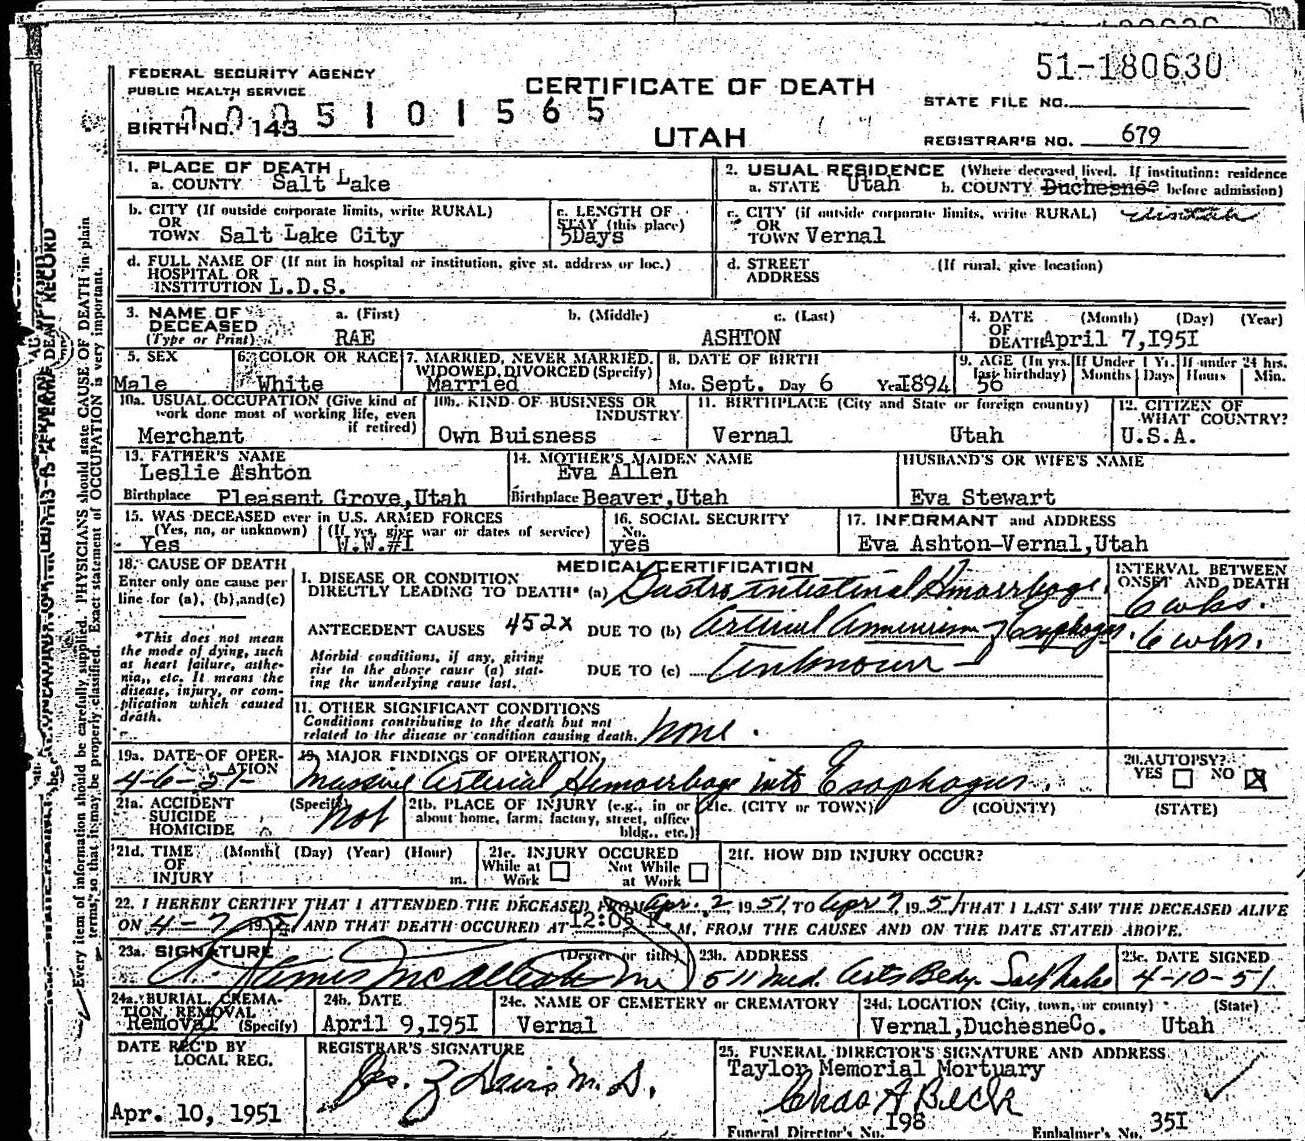 51-180630
FEDERAL SECURITY AGENCY
PUBLIC HEALTH SERVICE
CERTIFICATE OF DEATH
STATE FILE NO.
BIRTH NO. 143
5101565
UTAH
REGISTRAR'S NO. 679
1. PLACE OF DEATH
a. COUNTY Salt Lake
2. USUAL RESIDENCE (Where deceased lived. If institution: residence before admission)
a. STATE Utah b. COUNTY Duchesne
Uintah
b. CITY (If outside corporate limits, write RURAL) OR TOWN Salt Lake City
c. LENGTH OF STAY (this place) 5Days
c. CITY (if outside corporate limits, write RURAL) OR TOWN Vernal
d. FULL NAME OF (If not in hospital or institution, give st. address or loc.) HOSPITAL OR INSTITUTION L.D.S.
d. STREET ADDRESS (If rural, give location)
3. NAME OF DECEASED (Type or Print) a. (First) b. (Middle) c. (Last)
RAE ASHTON
4. DATE OF DEATH (Month) (Day) (Year) April 7,1951
5. SEX Male
6. COLOR OR RACE White
7. MARRIED, NEVER MARRIED, WIDOWED, DIVORCED (Specify) Married
8. DATE OF BIRTH Mo. Sept. Day 6 Year 1894
9. AGE (In yrs. last birthday) 56
If Under 1 Yr. Months Days
If under 24 hrs. Hours Min.
10a. USUAL OCCUPATION (Give kind of work done most of working life, even if retired) Merchant
10b. KIND OF BUSINESS OR INDUSTRY Own Buisness
11. BIRTHPLACE (City and State or foreign country) Vernal Utah
12. CITIZEN OF WHAT COUNTRY? U.S.A.
13. FATHER'S NAME Leslie Ashton
Birthplace Pleasent Grove,Utah
14. MOTHER'S MAIDEN NAME Eva Allen
Birthplace Beaver,Utah
HUSBAND'S OR WIFE'S NAME
Eva Stewart
15. WAS DECEASED ever in U.S. ARMED FORCES
(Yes, no, or unknown) Yes
(If yes, give war or dates of service) W.W.#I
16. SOCIAL SECURITY No. yes
17. INFORMANT and ADDRESS
Eva Ashton-Vernal,Utah
18. CAUSE OF DEATH
Enter only one cause per line for (a), (b), and (c)
*This does not mean the mode of dying, such as heart failure, asthenia, etc. It means the disease, injury, or complication which caused death.
MEDICAL CERTIFICATION
I. DISEASE OR CONDITION DIRECTLY LEADING TO DEATH* (a) Gastro intestinal Hemorrhage
INTERVAL BETWEEN ONSET AND DEATH
6 wks.
ANTECEDENT CAUSES 452x DUE TO (b) Arterial Anneurism of Esophagus. 6 wks.
Morbid conditions, if any, giving rise to the above cause (a) stating the underlying cause last.
DUE TO (c) Unknown
11. OTHER SIGNIFICANT CONDITIONS
Conditions contributing to the death but not related to the disease or condition causing death. None.
19a. DATE OF OPERATION 4-6-51
19. MAJOR FINDINGS OF OPERATION
Massive Arterial Hemorrhage into Esophagus.
20. AUTOPSY? YES NO X
21a. ACCIDENT SUICIDE HOMICIDE (Specify) Not
21b. PLACE OF INJURY (e.g., in or about home, farm, factory, street, office bldg., etc.)
21c. (CITY or TOWN) (COUNTY) (STATE)
21d. TIME OF INJURY (Month) (Day) (Year) (Hour) m.
21e. INJURY OCCURED While at Work Not While at Work
21f. HOW DID INJURY OCCUR?
22. I HEREBY CERTIFY THAT I ATTENDED THE DECEASED FROM Apr. 2 1951 TO Apr 7 1951 THAT I LAST SAW THE DECEASED ALIVE
ON 4-7 1951 AND THAT DEATH OCCURED AT 12:05 P. M, FROM THE CAUSES AND ON THE DATE STATED ABOVE.
23a. SIGNATURE (Degree or title)
23b. ADDRESS 511 Med. Arts Bldg. Salt Lake
23c. DATE SIGNED 4-10-51
24a. BURIAL, CREMATION, REMOVAL (Specify) Removal
24b. DATE April 9,1951
24c. NAME OF CEMETERY OR CREMATORY Vernal
24d. LOCATION (City, town, or county) (State)
Vernal,DuchesneCo. Utah
DATE REC'D BY LOCAL REG.
Apr. 10, 1951
REGISTRAR'S SIGNATURE
25. FUNERAL DIRECTOR'S SIGNATURE AND ADDRESS
Taylor Memorial Mortuary
Chas A Beck
Funeral Director's No. 198 Embalmer's No. 351
Every item of information should be carefully supplied. PHYSICIANS should state CAUSE OF DEATH in plain
terms, so that it may be properly classified. Exact statement of OCCUPATION is very important.